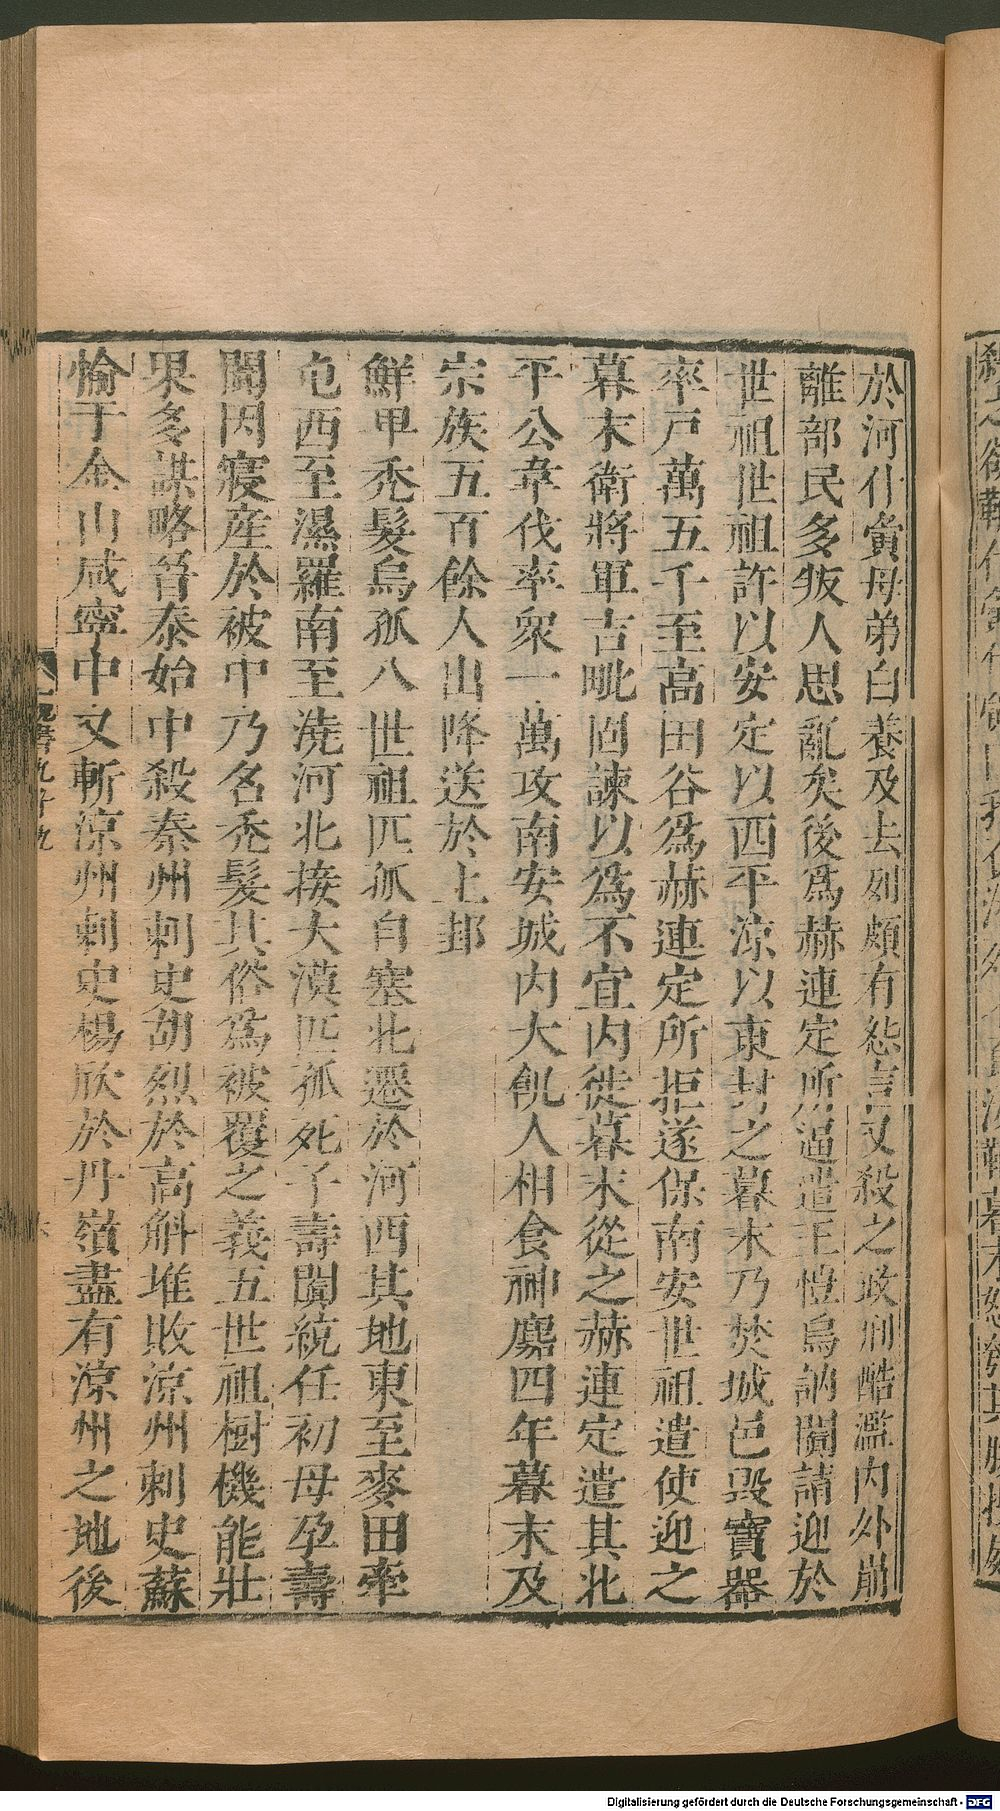 於河什寅母弟白養及去列頗有怨言又殺之政刑酷濫內外崩
離部民多叛人思亂矣後爲赫連定所逼遣王愷烏訥闐請迎於
世祖世祖許以安定以西平涼以東封之暮末乃焚城邑毀寶器
率戶萬五千至高田谷爲赫連定所拒遂保南安世祖遣使迎之
暮末衛將軍吉毗固諫以爲不宜內徙暮末從之赫連定遣其北
平公韋伐率衆一萬攻南安城內大飢人相食神䴥四年暮末及
宗族五百餘人出降送於上邽
鮮卑禿髮烏孤八世祖匹孤自塞北遷於河西其地東至麥田牽
屯西至濕羅南至澆河北接大漠匹孤死子壽闐統任初母孕壽
闐因寢產於被中乃名禿髮其俗爲被覆之義五世祖樹機能壯
果多謀略晉泰始中殺秦州刺史胡烈於高斛堆敗涼州刺史蘇
愉于金山咸寧中又斬涼州刺史楊欣於丹嶺盡有涼州之地後
Digitalisierung gefördert durch die Deutsche Forschungsgemeinschaft - DFG